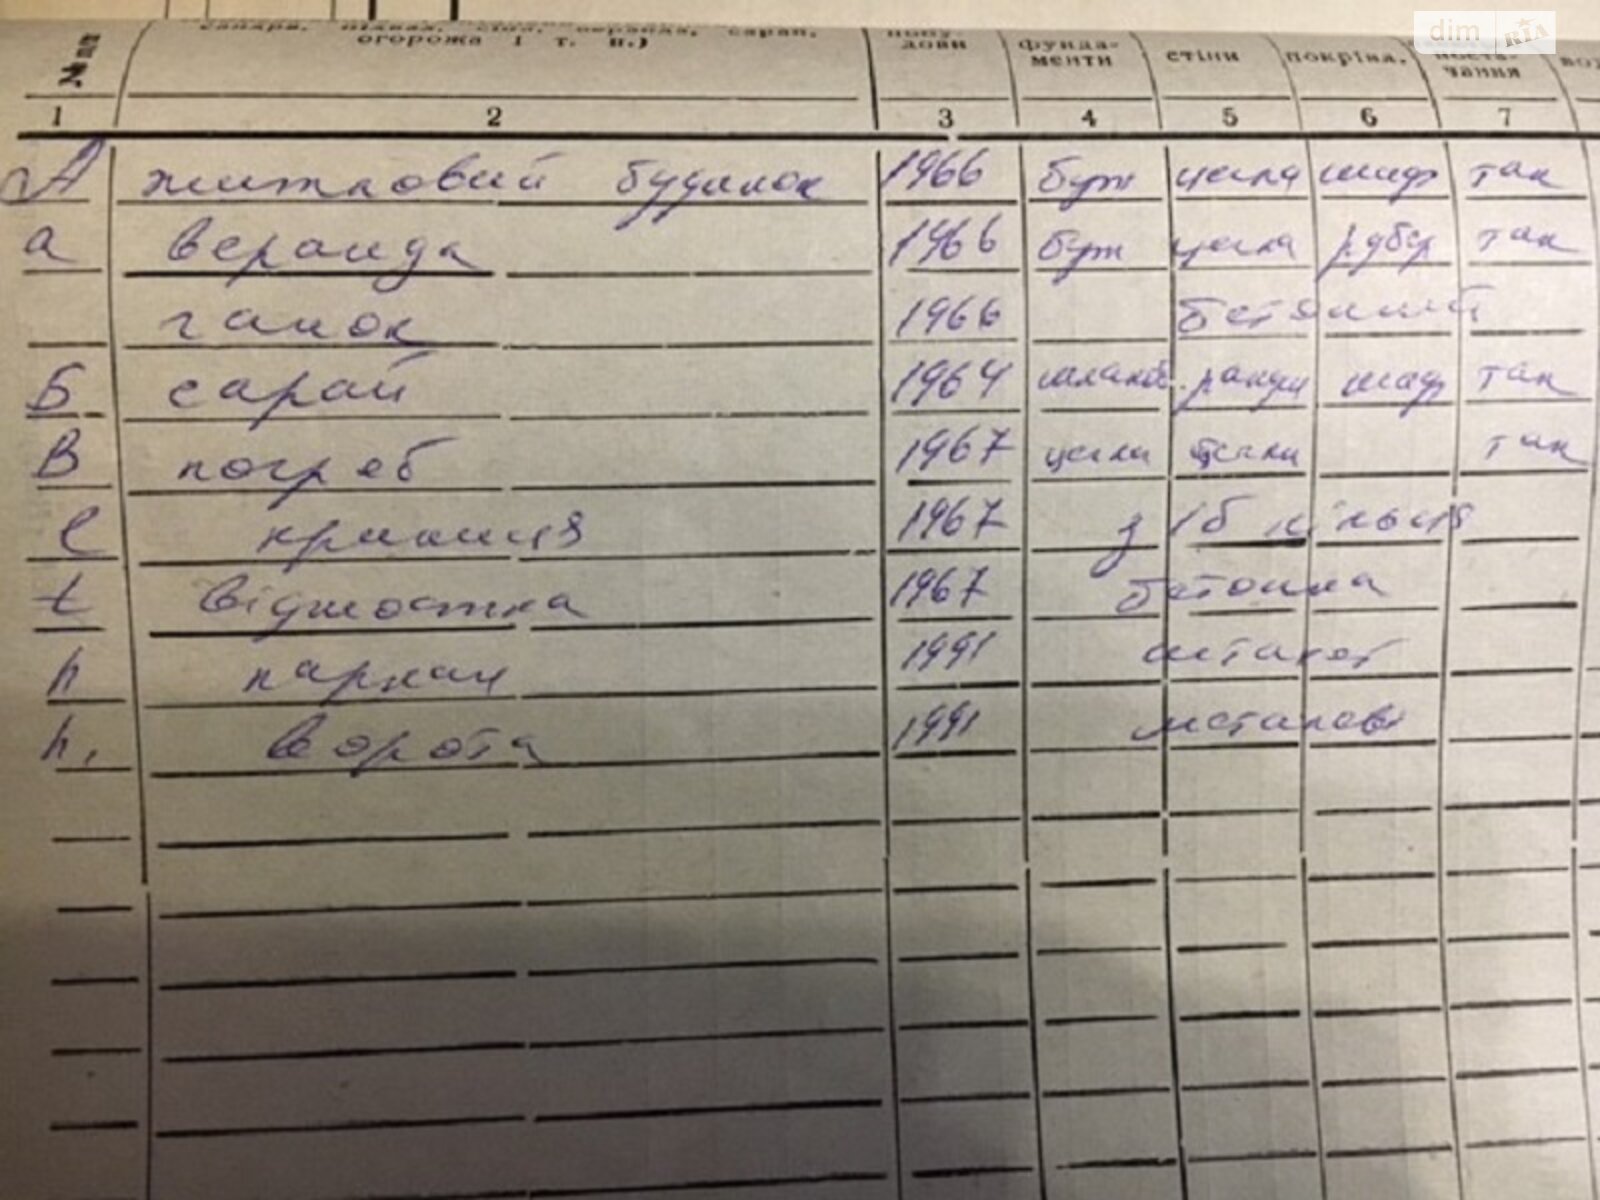 dim RIA
огорожа і т. п.)
дови
фунда-
менти
стіни
покрівл.
чання
№ пп
1 2 3 4 5 6 7
А житловий будинок 1966 бут цегла шиф так
а веранда 1966 бут цегла рубер так
ганок 1966 бетонний
Б сарай 1964 шлакоб. ракуш шиф так
В погреб 1967 цегли цегли так
криниця 1967 з з/б кільця
відмостка 1967 бетонна
паркан 1991 штахет
ворота 1991 металеві